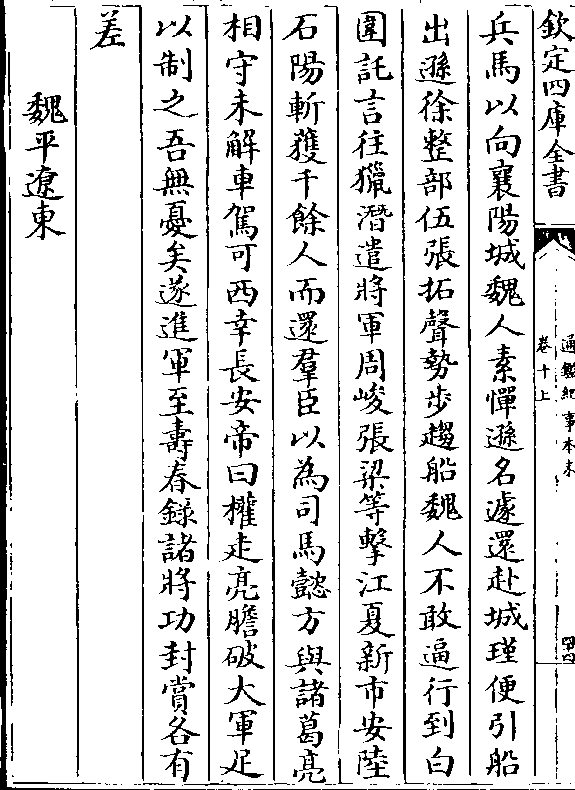 欽定四庫全書
通鑑紀事本末
卷十上
四四
兵馬以向襄陽城魏人素憚遜名遽還赴城瑾便引船
出遜徐整部伍張拓聲勢步趨船魏人不敢逼行到白
圍託言往獵潛遣將軍周峻張梁等擊江夏新市安陸
石陽斬獲千餘人而還羣臣以為司馬懿方與諸葛亮
相守未解車駕可西幸長安帝曰權走亮膽破大軍足
以制之吾無憂矣遂進軍至壽春錄諸將功封賞各有
差
魏平遼東